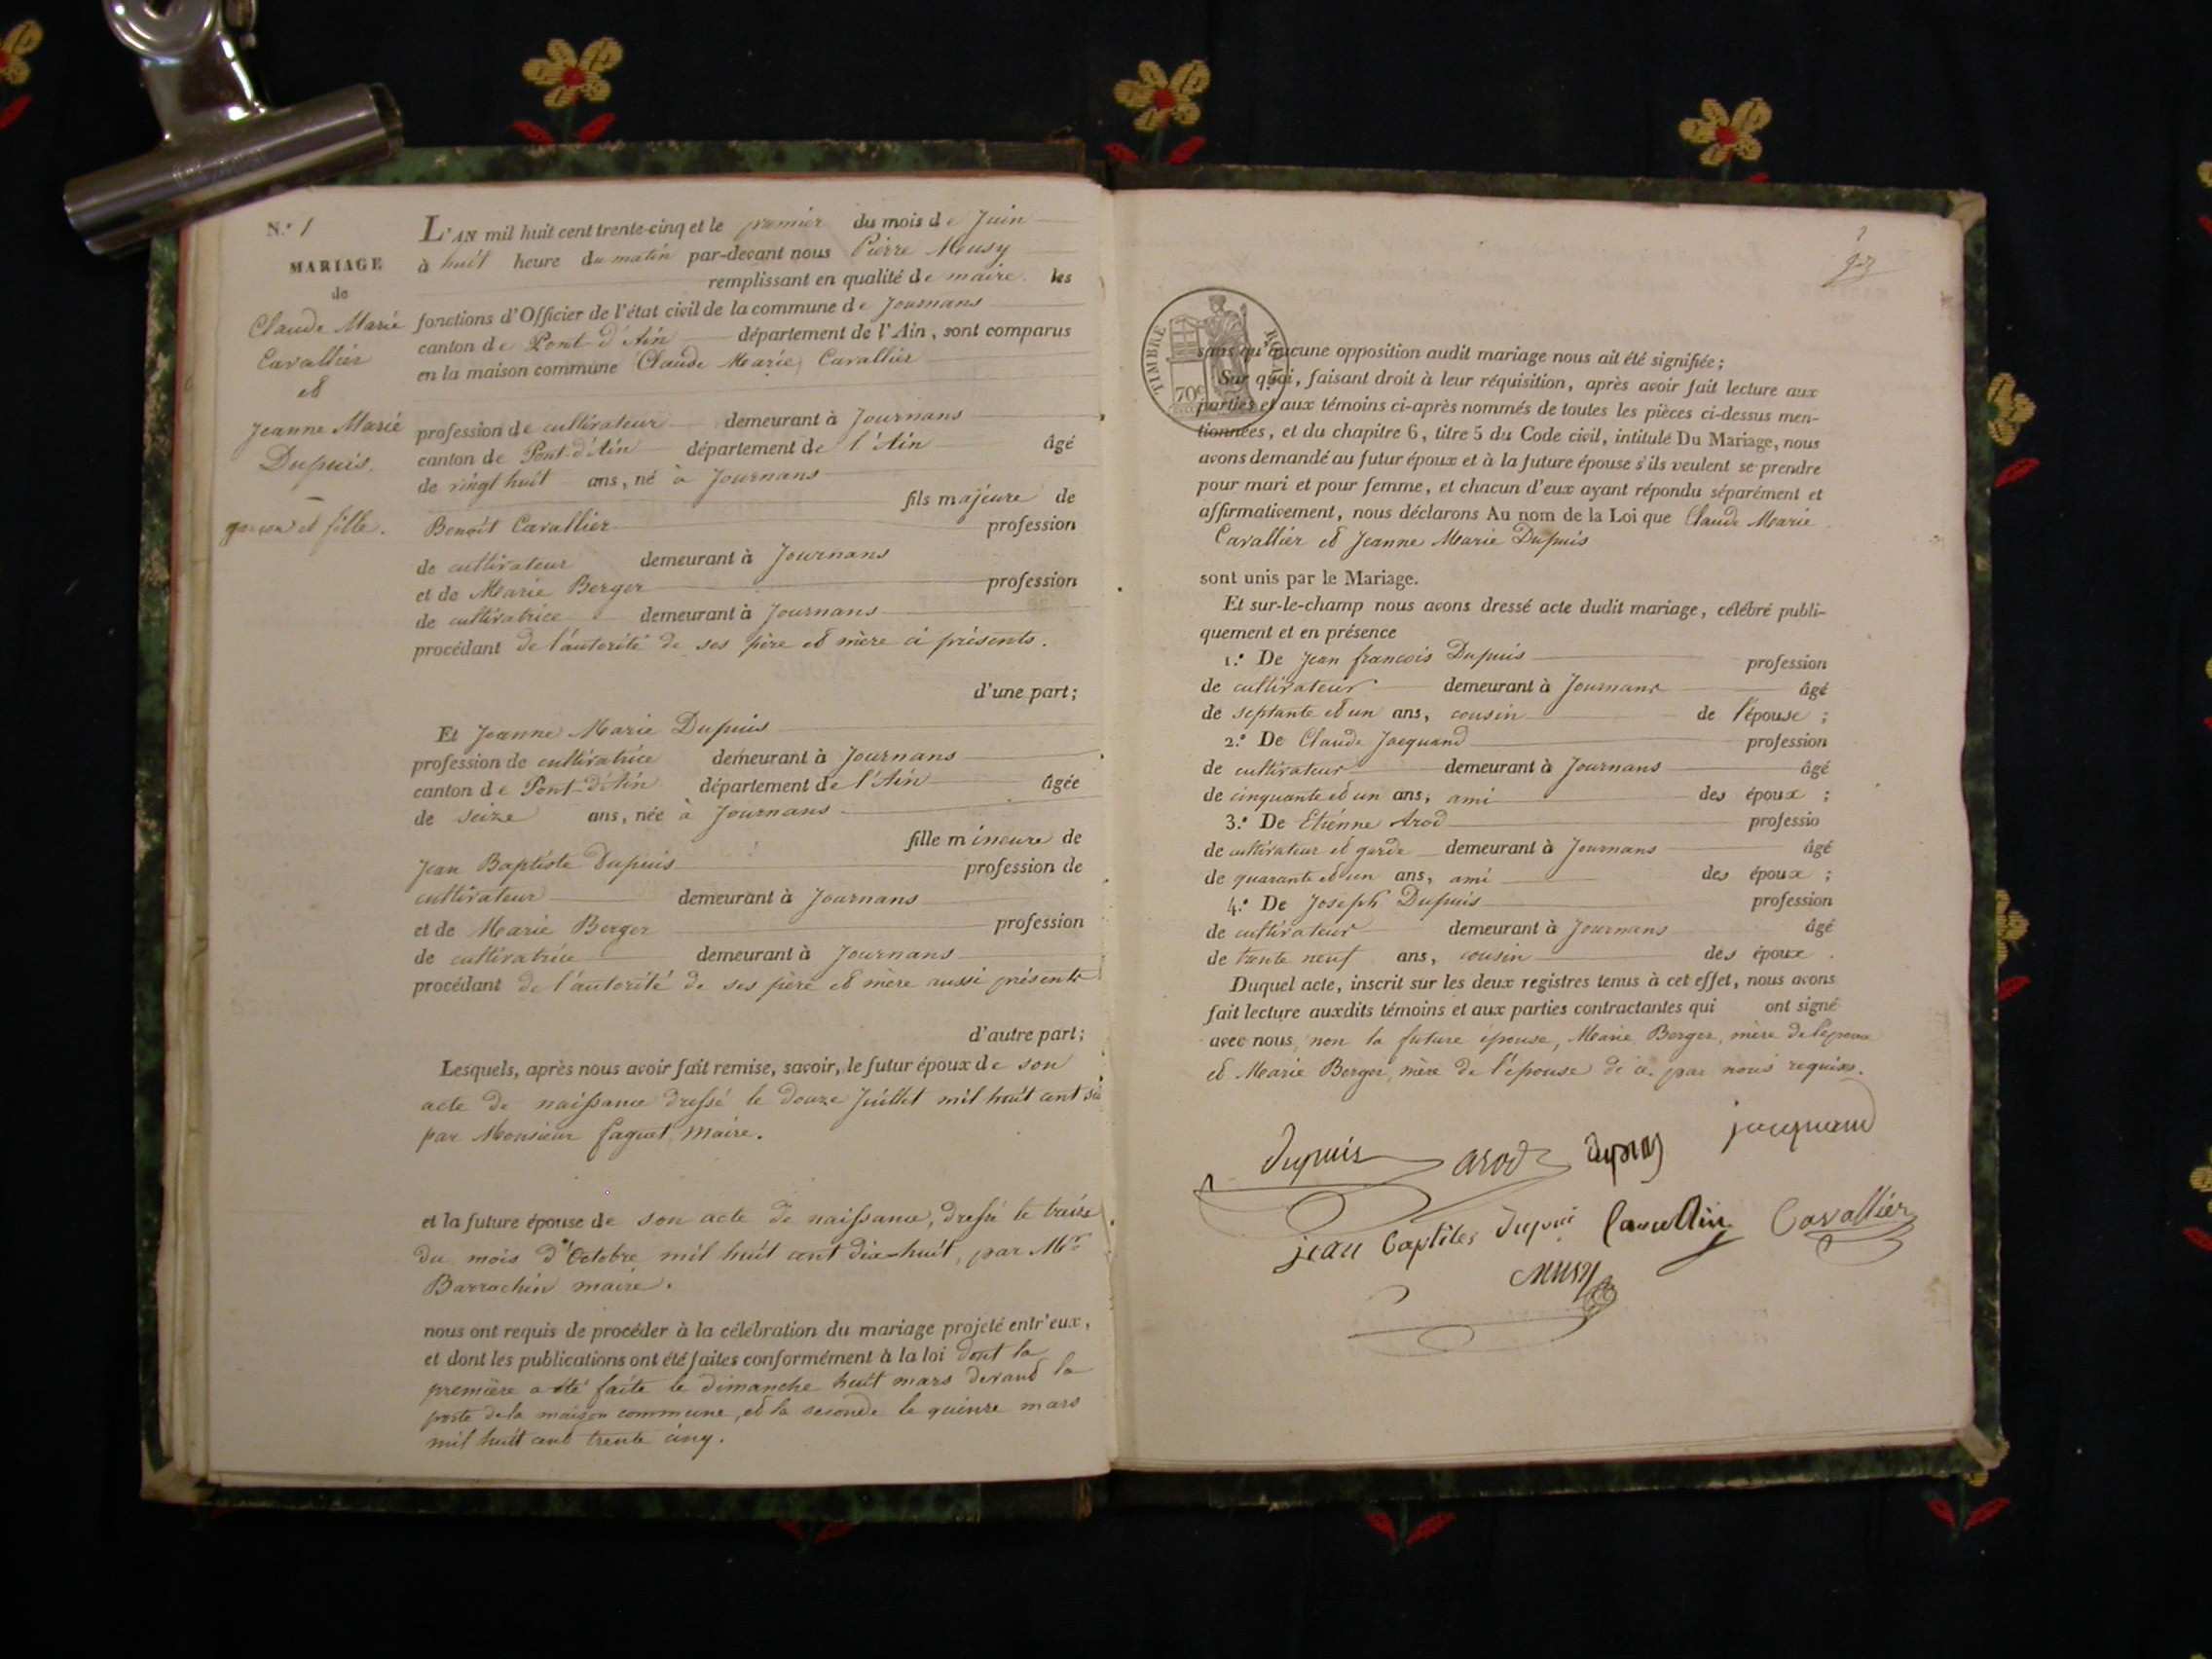 N.º 1
MARIAGE
de
Claude Marie
Cavallier
et
Jeanne Marie
Dupuis.
garçon et fille.
L'AN mil huit cent trente-cinq et le premier du mois de Juin
à huit heure du matin par-devant nous Pierre Musy
remplissant en qualité de maire les
fonctions d'Officier de l'état civil de la commune de Journans
canton de Pont-d'Ain département de l'Ain, sont comparus
en la maison commune Claude Marie Cavallier
profession de cultivateur demeurant à Journans
canton de Pont-d'Ain département de l'Ain âgé
de vingt huit ans, né à Journans
fils majeure de
Benoit Cavallier profession
de cultivateur demeurant à Journans
et de Marie Berger profession
de cultivatrice demeurant à Journans
procédant de l'autorité de ses père et mère ci présents.
d'une part;
Et Jeanne Marie Dupuis
profession de cultivatrice demeurant à Journans
canton de Pont-d'Ain département de l'Ain âgée
de seize ans, née à Journans
fille mineure de
Jean Baptiste Dupuis profession de
cultivateur demeurant à Journans
et de Marie Berger profession
de cultivatrice demeurant à Journans
procédant de l'autorité de ses père et mère aussi présents
d'autre part;
Lesquels, après nous avoir fait remise, savoir, le futur époux de son
acte de naissance dressé le douze Juillet mil huit cent six
par Monsieur faguet, Maire.
et la future épouse de son acte de naissance, dressé le treize
du mois d'Octobre mil huit cent dix-huit, par Mr
Barrachin maire.
nous ont requis de procéder à la célébration du mariage projeté entr'eux,
et dont les publications ont été faites conformément à la loi dont la
première a été faite le dimanche huit mars devand la
porte de la maison commune, et la seconde le quinze mars
mil huit cent trente cinq.
TIMBRE ROYAL
70c
sans qu'aucune opposition audit mariage nous ait été signifiée;
Sur quoi, faisant droit à leur réquisition, après avoir fait lecture aux
parties et aux témoins ci-après nommés de toutes les pièces ci-dessus men-
tionnées, et du chapitre 6, titre 5 du Code civil, intitulé Du Mariage, nous
avons demandé au futur époux et à la future épouse s'ils veulent se prendre
pour mari et pour femme, et chacun d'eux ayant répondu séparément et
affirmativement, nous déclarons Au nom de la Loi que Claude Marie
Cavallier et Jeanne Marie Dupuis
sont unis par le Mariage.
Et sur-le-champ nous avons dressé acte dudit mariage, célébré publi-
quement et en présence
1.º De Jean francois Dupuis profession
de cultivateur demeurant à Journans âgé
de septante et un ans, cousin de l'épouse ;
2.º De Claude Jacquand profession
de cultivateur demeurant à Journans âgé
de cinquante et un ans, ami des époux ;
3.º De Etienne Arod professio
de cultivateur et garde demeurant à Journans âgé
de quarante et un ans, ami des époux ;
4.º De Joseph Dupuis profession
de cultivateur demeurant à Journans âgé
de trente neuf ans, cousin des époux .
Duquel acte, inscrit sur les deux registres tenus à cet effet, nous avons
fait lecture auxdits témoins et aux parties contractantes qui ont signé
avec nous, non la future épouse, Marie Berger, mère de l'époux
et Marie Berger, mère de l'épouse de ce par nous requises.
Dupuis arod dupuis jacquand
jean baptites dupui Cavallier
Musy